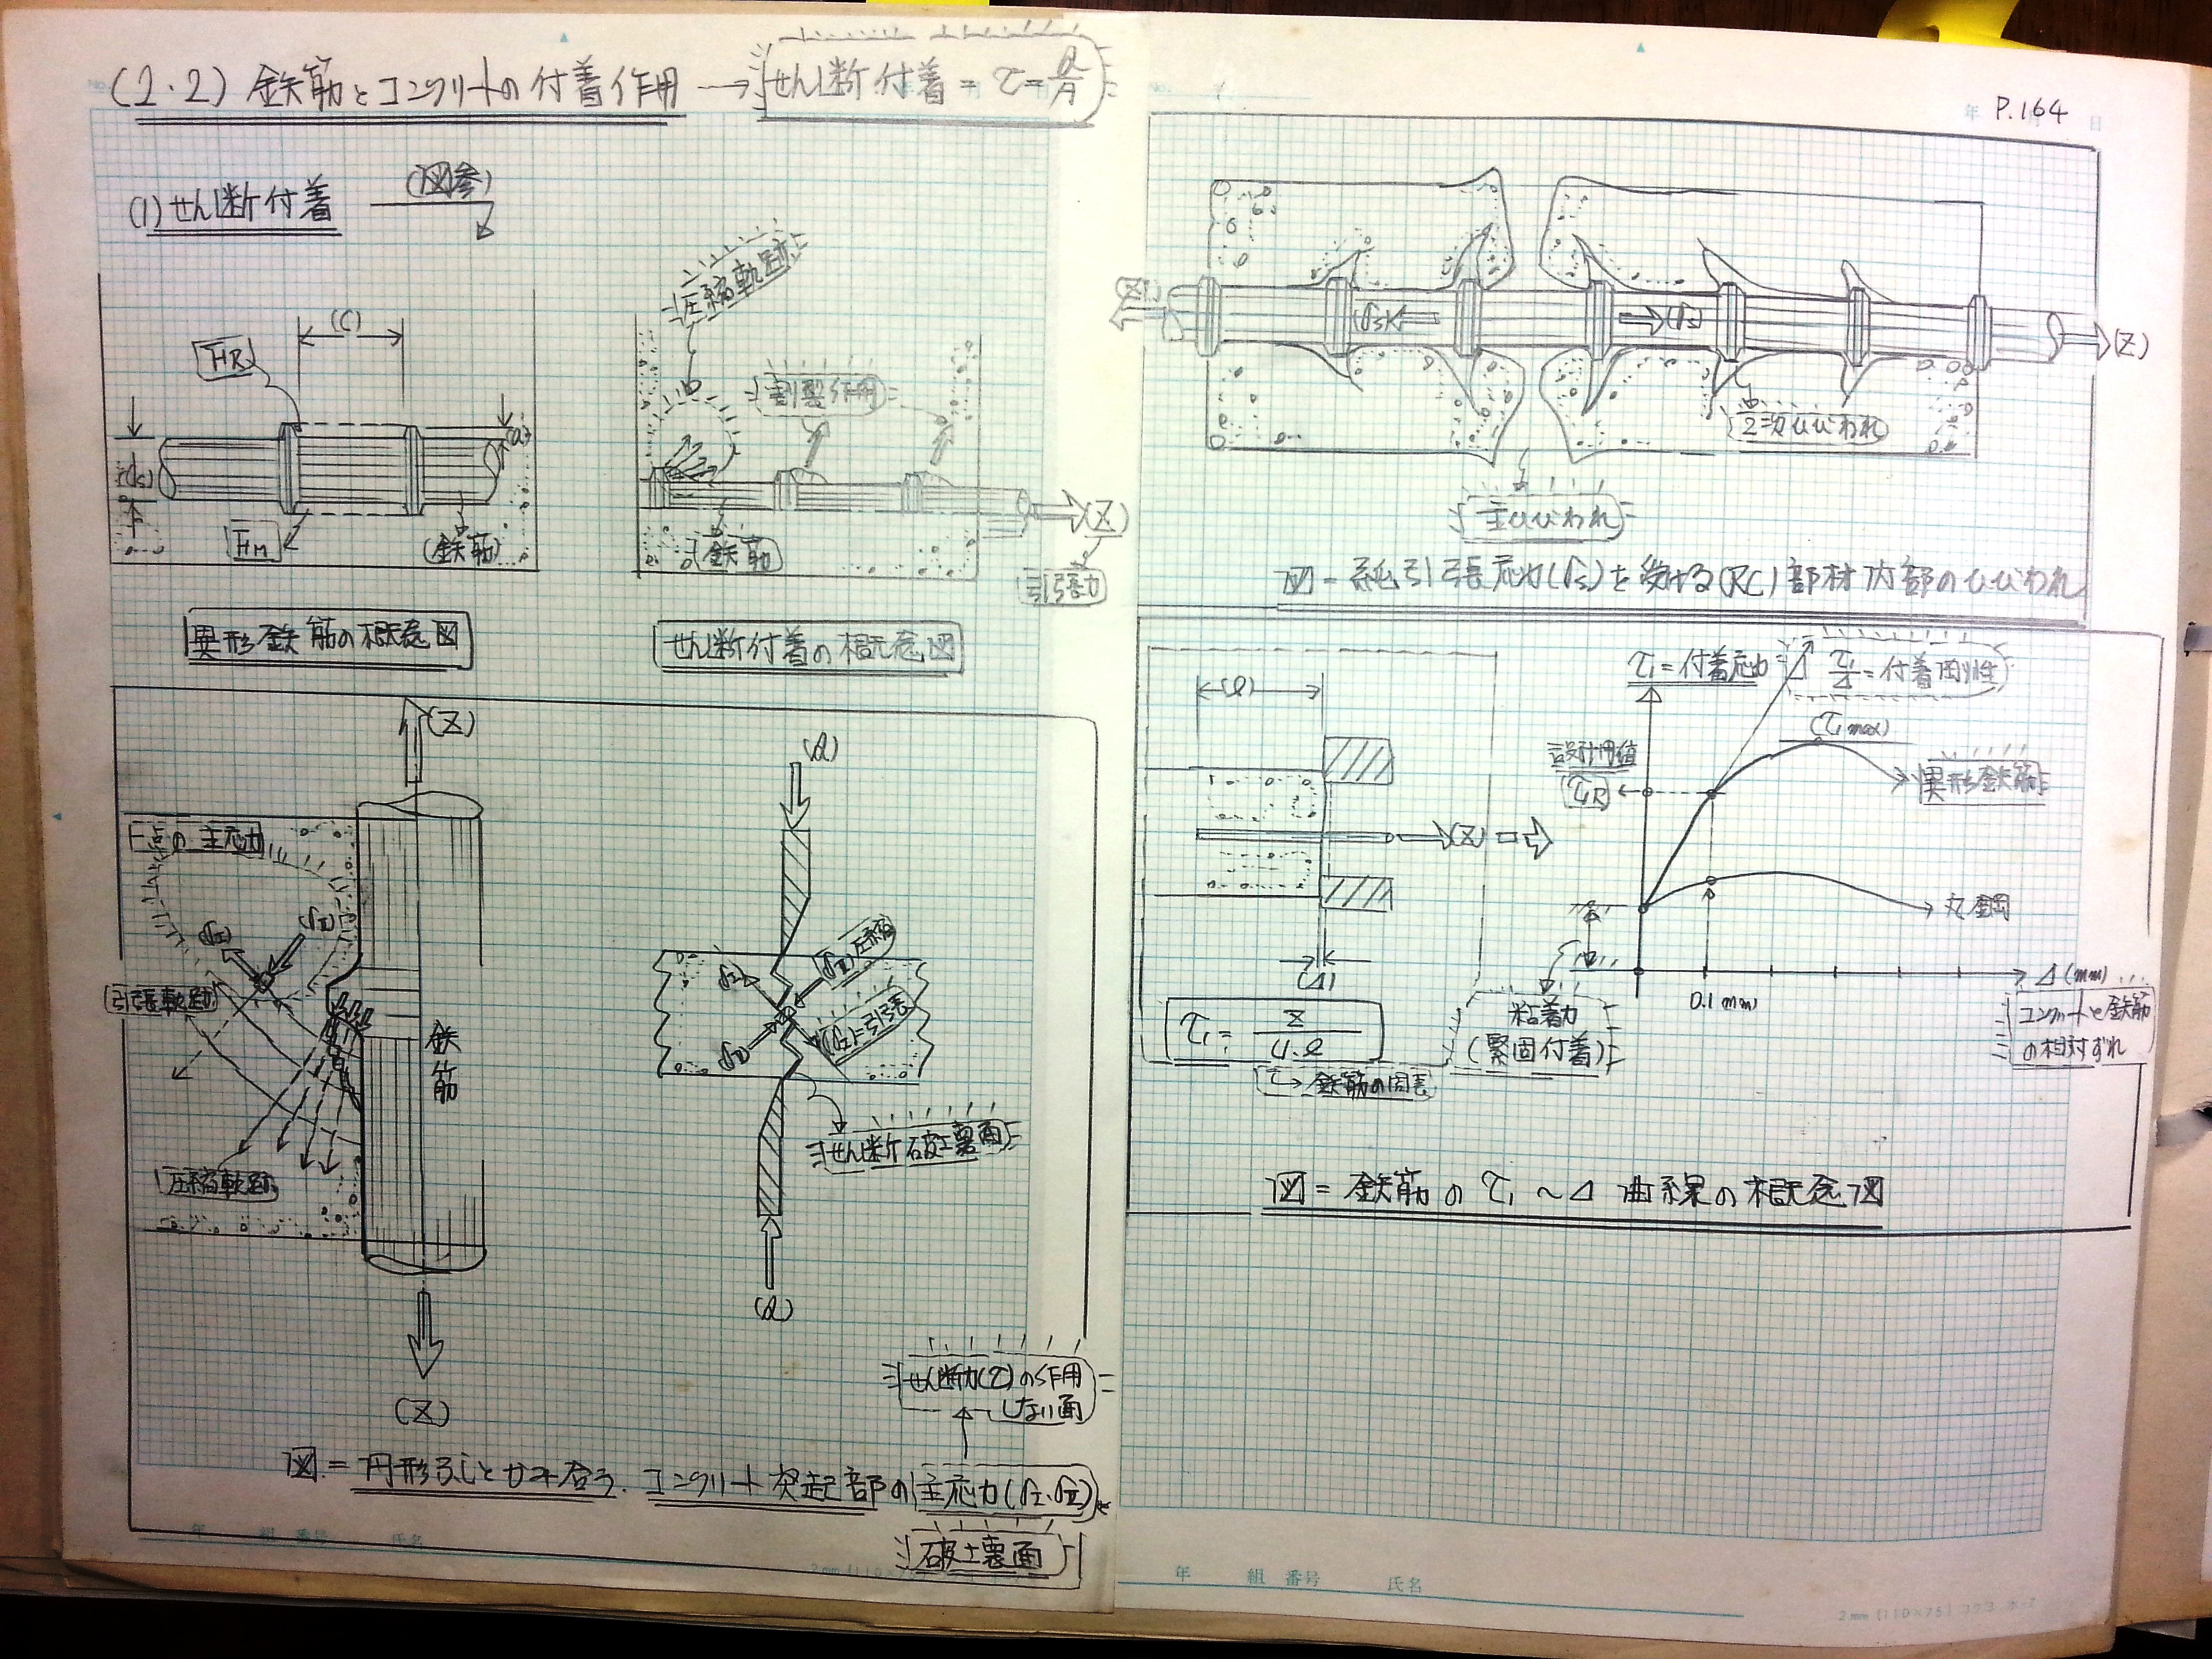 (2.2) 鉄筋とコンクリートの付着作用 → せん断付着 = τ = Q/A
(1) せん断付着 (図参)
(C)
F_HR
(a)
(ds)
F_HM
(鉄筋)
異形鉄筋の概念図
圧縮軌跡
割裂作用
鉄筋
(Z)
引張力
せん断付着の概念図
(Z)
F点の主応力
(σI)
(σII)
引張軌跡
鉄筋
圧縮軌跡
(Z)
(Q)
σI
(σII)圧縮
σII
(σI)=引張
せん断破壊面
(Q)
せん断力(τ)の作用
しない面
図 = 円形ふしとかみ合う、コンクリート突起部の主応力(σI、σII)
破壊面
年 組 番号 氏名
P.164
年 日
(Z)
(σs)
(σs)
(Z)
2次ひびわれ
主ひびわれ
図 - 純引張応力(σs)を受ける(RC)部材内部のひびわれ
(ℓ)
(Z)
(Δ)
τ1 = Z / U.ℓ
鉄筋の周長
τ1 = 付着応力
τ1/Δ = 付着剛性
(τ1 max)
設計用値
τR
異形鉄筋
丸鋼
Δ (mm)
0.1 (mm)
粘着力
(緊固付着)
コンクリートと鉄筋
の相対ずれ
図 = 鉄筋の τ1 ~ Δ 曲線の概念図
年 組 番号 氏名